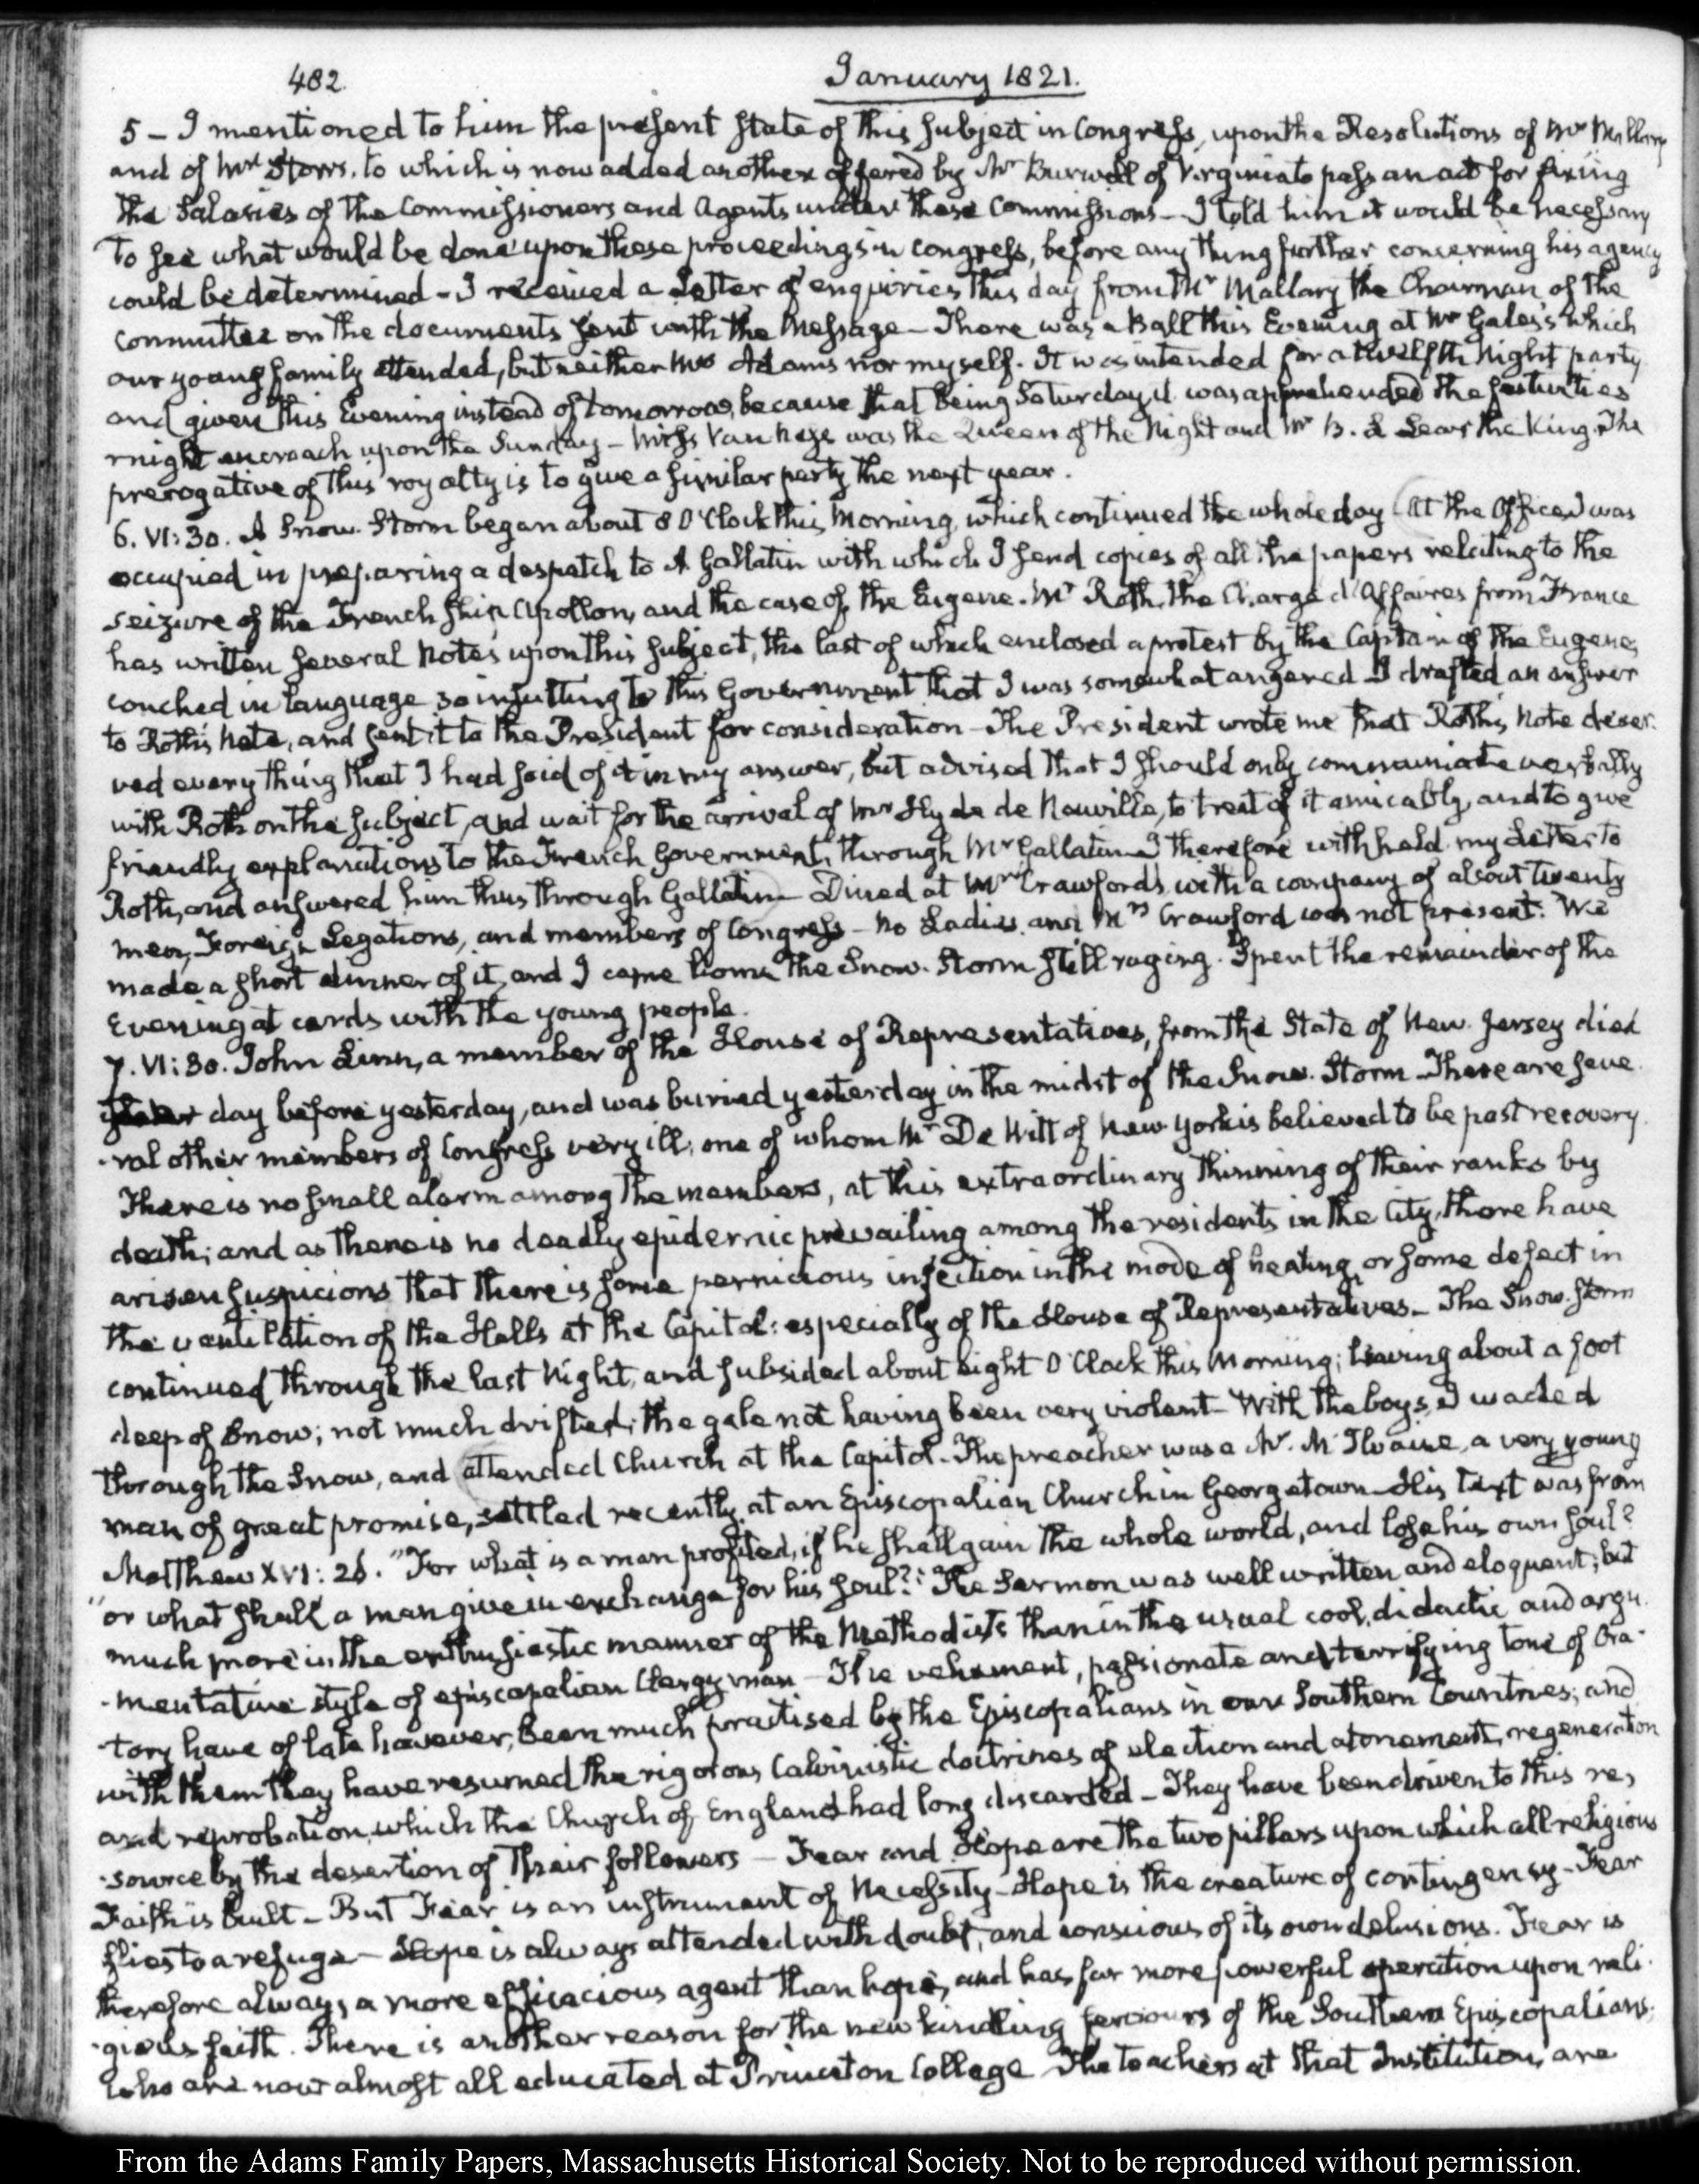 482.
January 1821.
5 – I mentioned to him the present state of this subject in Congress, upon the Resolutions of Mr Mallary
and of Mr Storrs, to which is now added another offered by Mr Burwell of Virginia to pass an act for fixing
the Salaries of the Commissioners and Agents under these Commissions – I told him it would be necessary
to see what would be done upon these proceedings in Congress, before any thing further concerning his agency
could be determined – I received a Letter of enquiries this day from Mr Mallary the Chairman of the
Committee on the documents sent with the Message – There was a Ball this Evening at Mr Gales's which
our young family attended, but neither Mrs Adams nor myself. It was intended for a twelfth Night party
and given this Evening instead of tomorrow, because that being Saturday it was apprehended the festivities
might encroach upon the Sunday – Miss Van Ness was the Queen of the Night and Mr B. Lear the King. The
prerogative of this royalty is to give a similar party the next year.
6. VI:30. A Snow-Storm began about 8 O'Clock this Morning, which continued the whole day – At the Office, I was
occupied in preparing a despatch to A Gallatin with which I send copies of all the papers relating to the
seizure of the French Ship Apollon, and the case of the Eugene. Mr Roth, the Chargé d'Affaires from France
has written several Notes upon this subject, the last of which enclosed a protest by the Captain of the Eugene,
couched in language so insulting to this Government that I was somewhat angered – I drafted an answer
to Roth's Note, and sent it to the President for consideration – The President wrote me that Roth's Note deser-
ved every thing that I had said of it in my answer, but advised that I should only communicate verbally
with Roth on the subject, and wait for the arrival of Mr Hyde de Neuville, to treat of it amicably, and to give
friendly explanations to the French Government, through Mr Gallatin – I therefore withheld my Letter to
Roth, and answered him thus through Gallatin – Dined at Mr Crawford's with a company of about twenty
men, Foreign Legations, and members of Congress – No Ladies, and Mrs Crawford was not present. We
made a short dinner of it, and I came home the Snow-Storm still raging. Spent the remainder of the
Evening at cards with the young people.
7. VI:30. John Linn, a member of the House of Representatives, from the State of New-Jersey died
day before yesterday, and was buried yesterday in the midst of the Snow-Storm – There are seve-
-ral other members of Congress very ill, one of whom Mr De Witt of New-York is believed to be past recovery.
There is no small alarm among the members, at this extraordinary thinning of their ranks by
death; and as there is no deadly epidemic prevailing among the residents in the City, there have
arisen suspicions that there is some pernicious infection in the mode of heating, or some defect in
the ventilation of the Halls at the Capitol: especially of the House of Representatives – The Snow-Storm
continued through the last Night, and subsided about eight O'Clock this Morning; leaving about a foot
deep of Snow; not much drifted; the gale not having been very violent – With the boys, I waded
through the Snow, and attended Church at the Capitol – The preacher was a Mr. McIlvaine, a very young
man of great promise, settled recently, at an Episcopalian Church in Georgetown – His text was from
Matthew XVI: 26. "For what is a man profited, if he shall gain the whole world, and lose his own soul?
"or what shall a man give in exchange for his soul?" The Sermon was well written and eloquent; but
much more in the enthusiastic manner of the Methodists than in the usual cool, didactic and argu-
-mentative style of episcopalian Clergyman – The vehement, passionate and terrifying tone of Ora-
-tory have of late however, been much practised by the Episcopalians in our Southern Countries; and
with them they have resumed the rigorous Calvinistic doctrines of election and atonement, regeneration
and reprobation, which the Church of England had long discarded – They have been driven to this re-
-source by the desertion of their followers – Fear and Hope are the two pillars upon which all religious
Faith is built – But Fear is an instrument of Necessity – Hope is the creature of contingency – Fear
flies to a refuge – Hope is always attended with doubt, and conscious of its own delusions. Fear is
therefore always a more efficacious agent than hope, and has far more powerful operation upon reli-
-gious faith. There is another reason for the new kindling fervours of the Southern Episcopalians;
who are now almost all educated at Princeton College – The teachers at that Institution, are
From the Adams Family Papers, Massachusetts Historical Society. Not to be reproduced without permission.